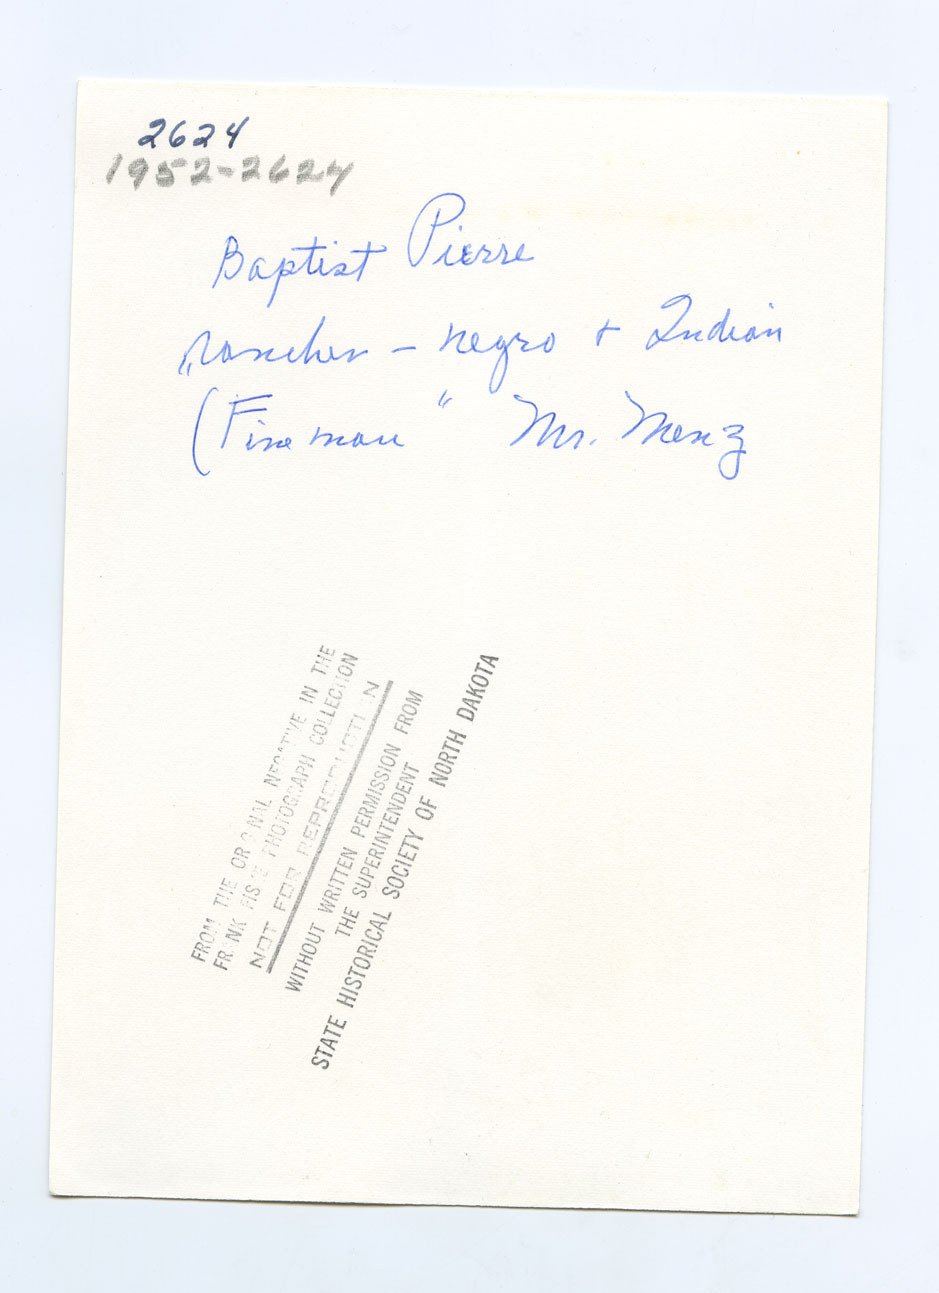 2624
1952-2624
Baptist Pierre
"rancher – negro + Indian
(Fine man" Mr. Menz
FROM THE ORIGINAL NEGATIVE IN THE
FRANK FISKE PHOTOGRAPH COLLECTION
NOT FOR REPRODUCTION
WITHOUT WRITTEN PERMISSION FROM
THE SUPERINTENDENT
STATE HISTORICAL SOCIETY OF NORTH DAKOTA